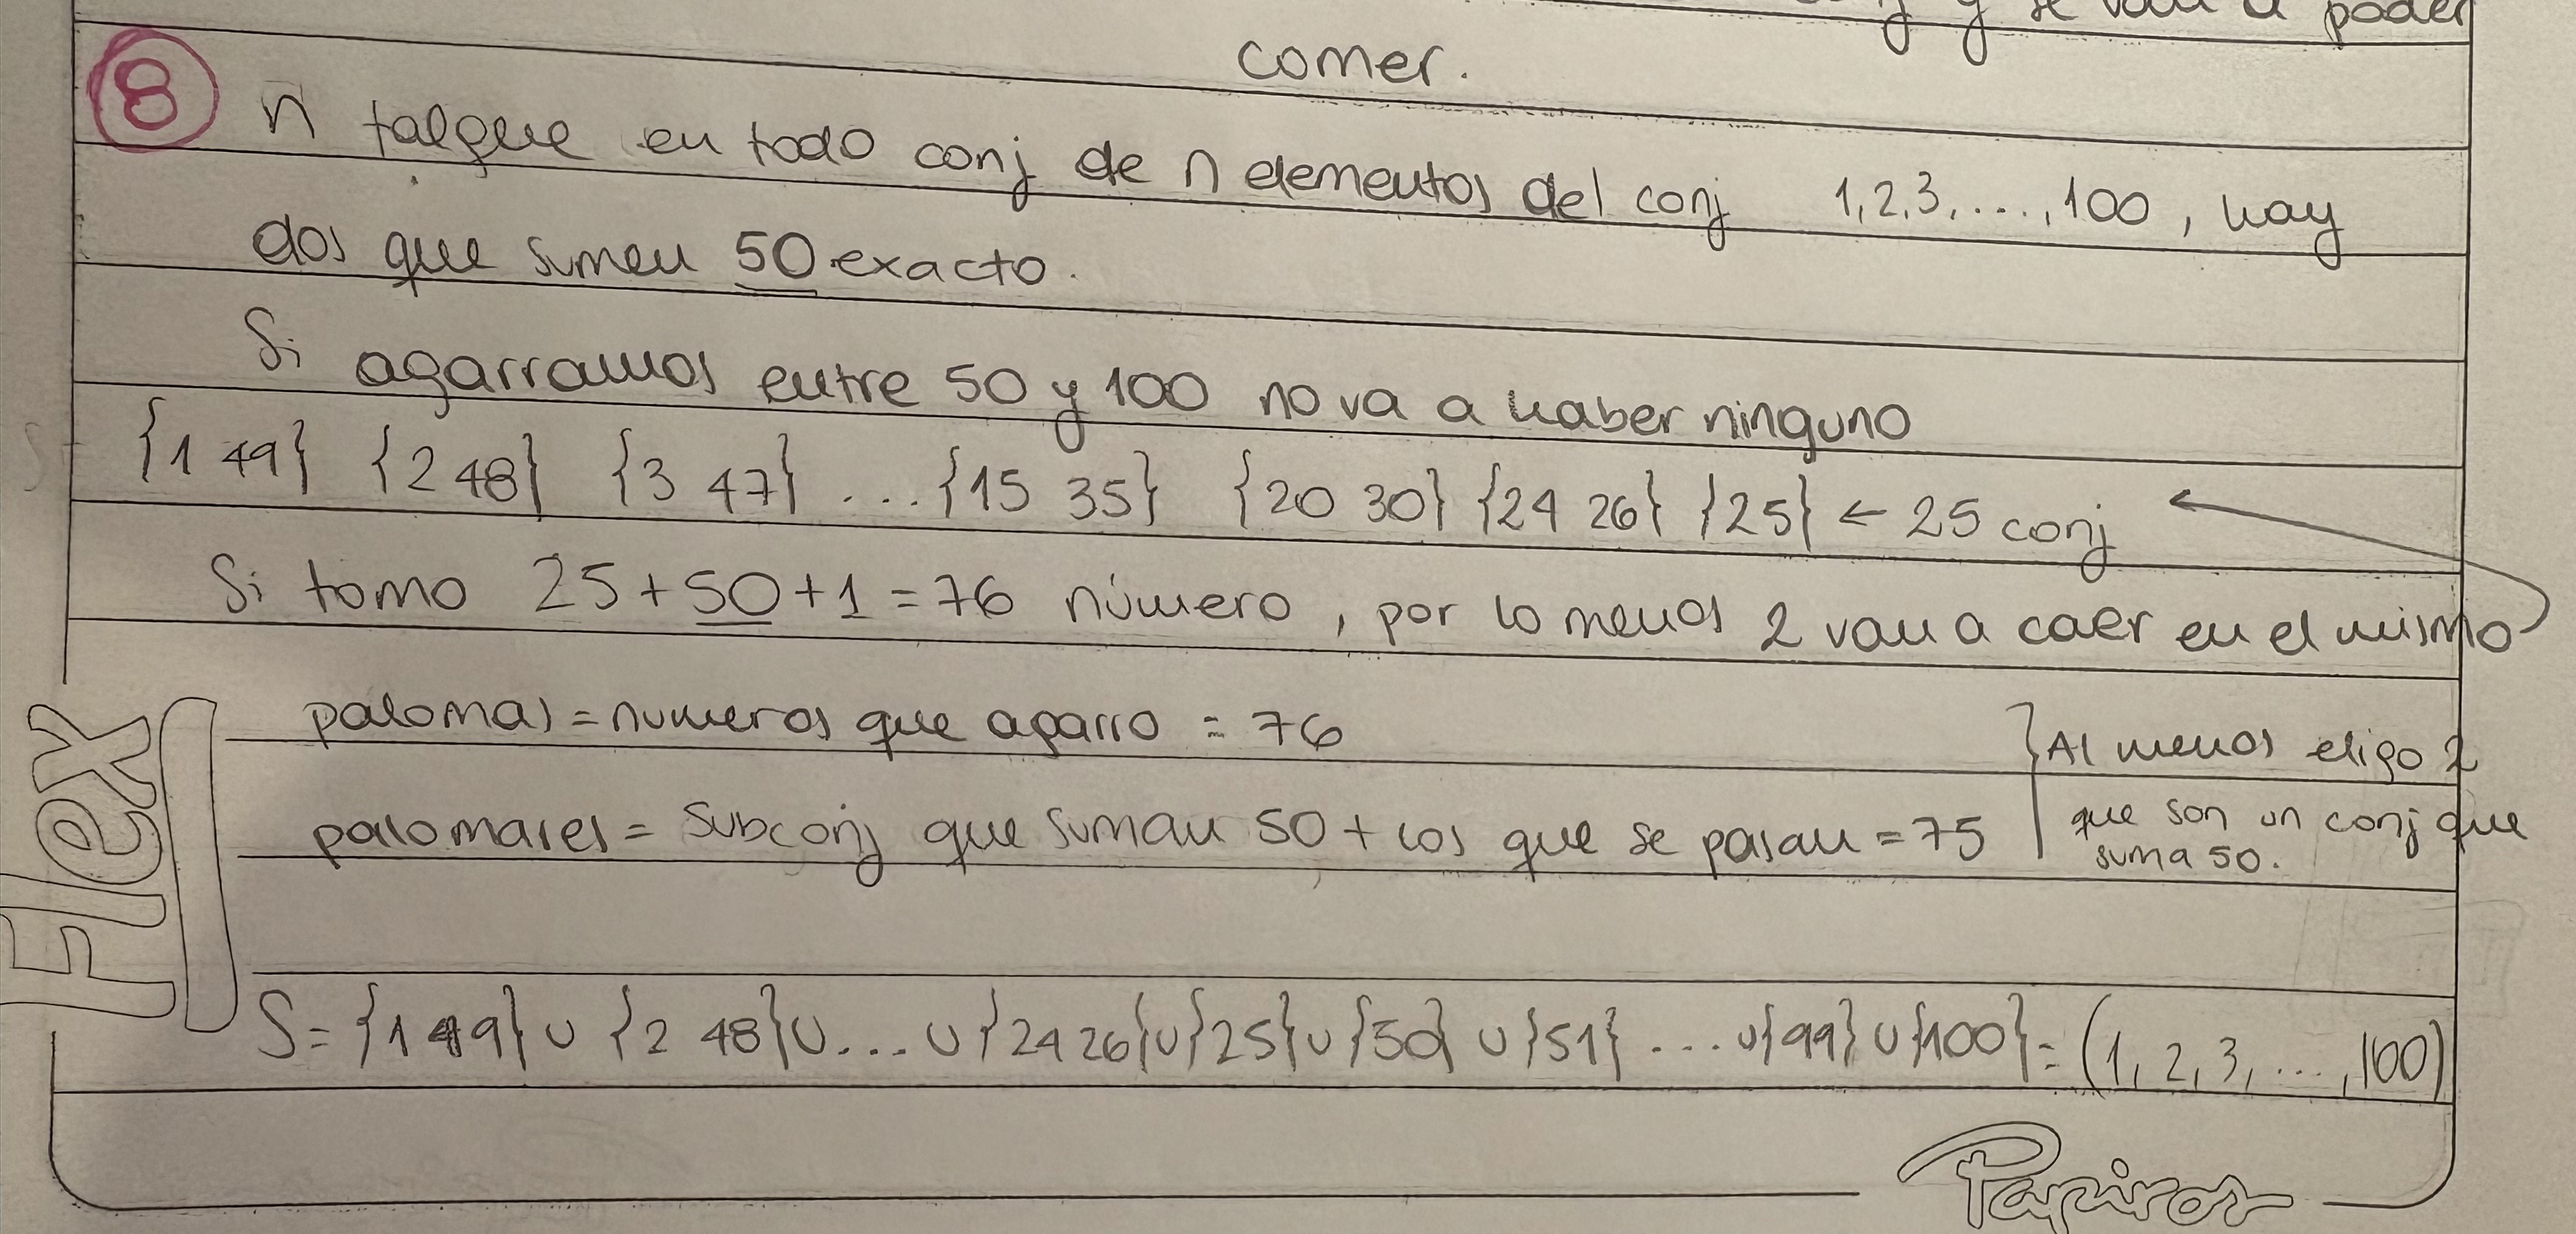 y se van a poder
comer.
8 n talque en todo conj de n elementos del conj 1,2,3,...,100, hay
dos que sumen 50 exacto.
Si agarramos entre 50 y 100 no va a haber ninguno
{1 49} {2 48} {3 47} ... {15 35} {20 30} {24 26} {25} ← 25 conj
Si tomo 25+50+1=76 número, por lo menos 2 van a caer en el mismo
palomas = numeros que agarro = 76
palomares = subconj que suman 50 + los que se pasan = 75
} Al menos eligo 2
que son un conj que
suma 50.
S = {1 49} ∪ {2 48} ∪ ... ∪ {24 26} ∪ {25} ∪ {50} ∪ {51} ... ∪ {99} ∪ {100} = (1, 2, 3, ..., 100)
Flex
Papiros